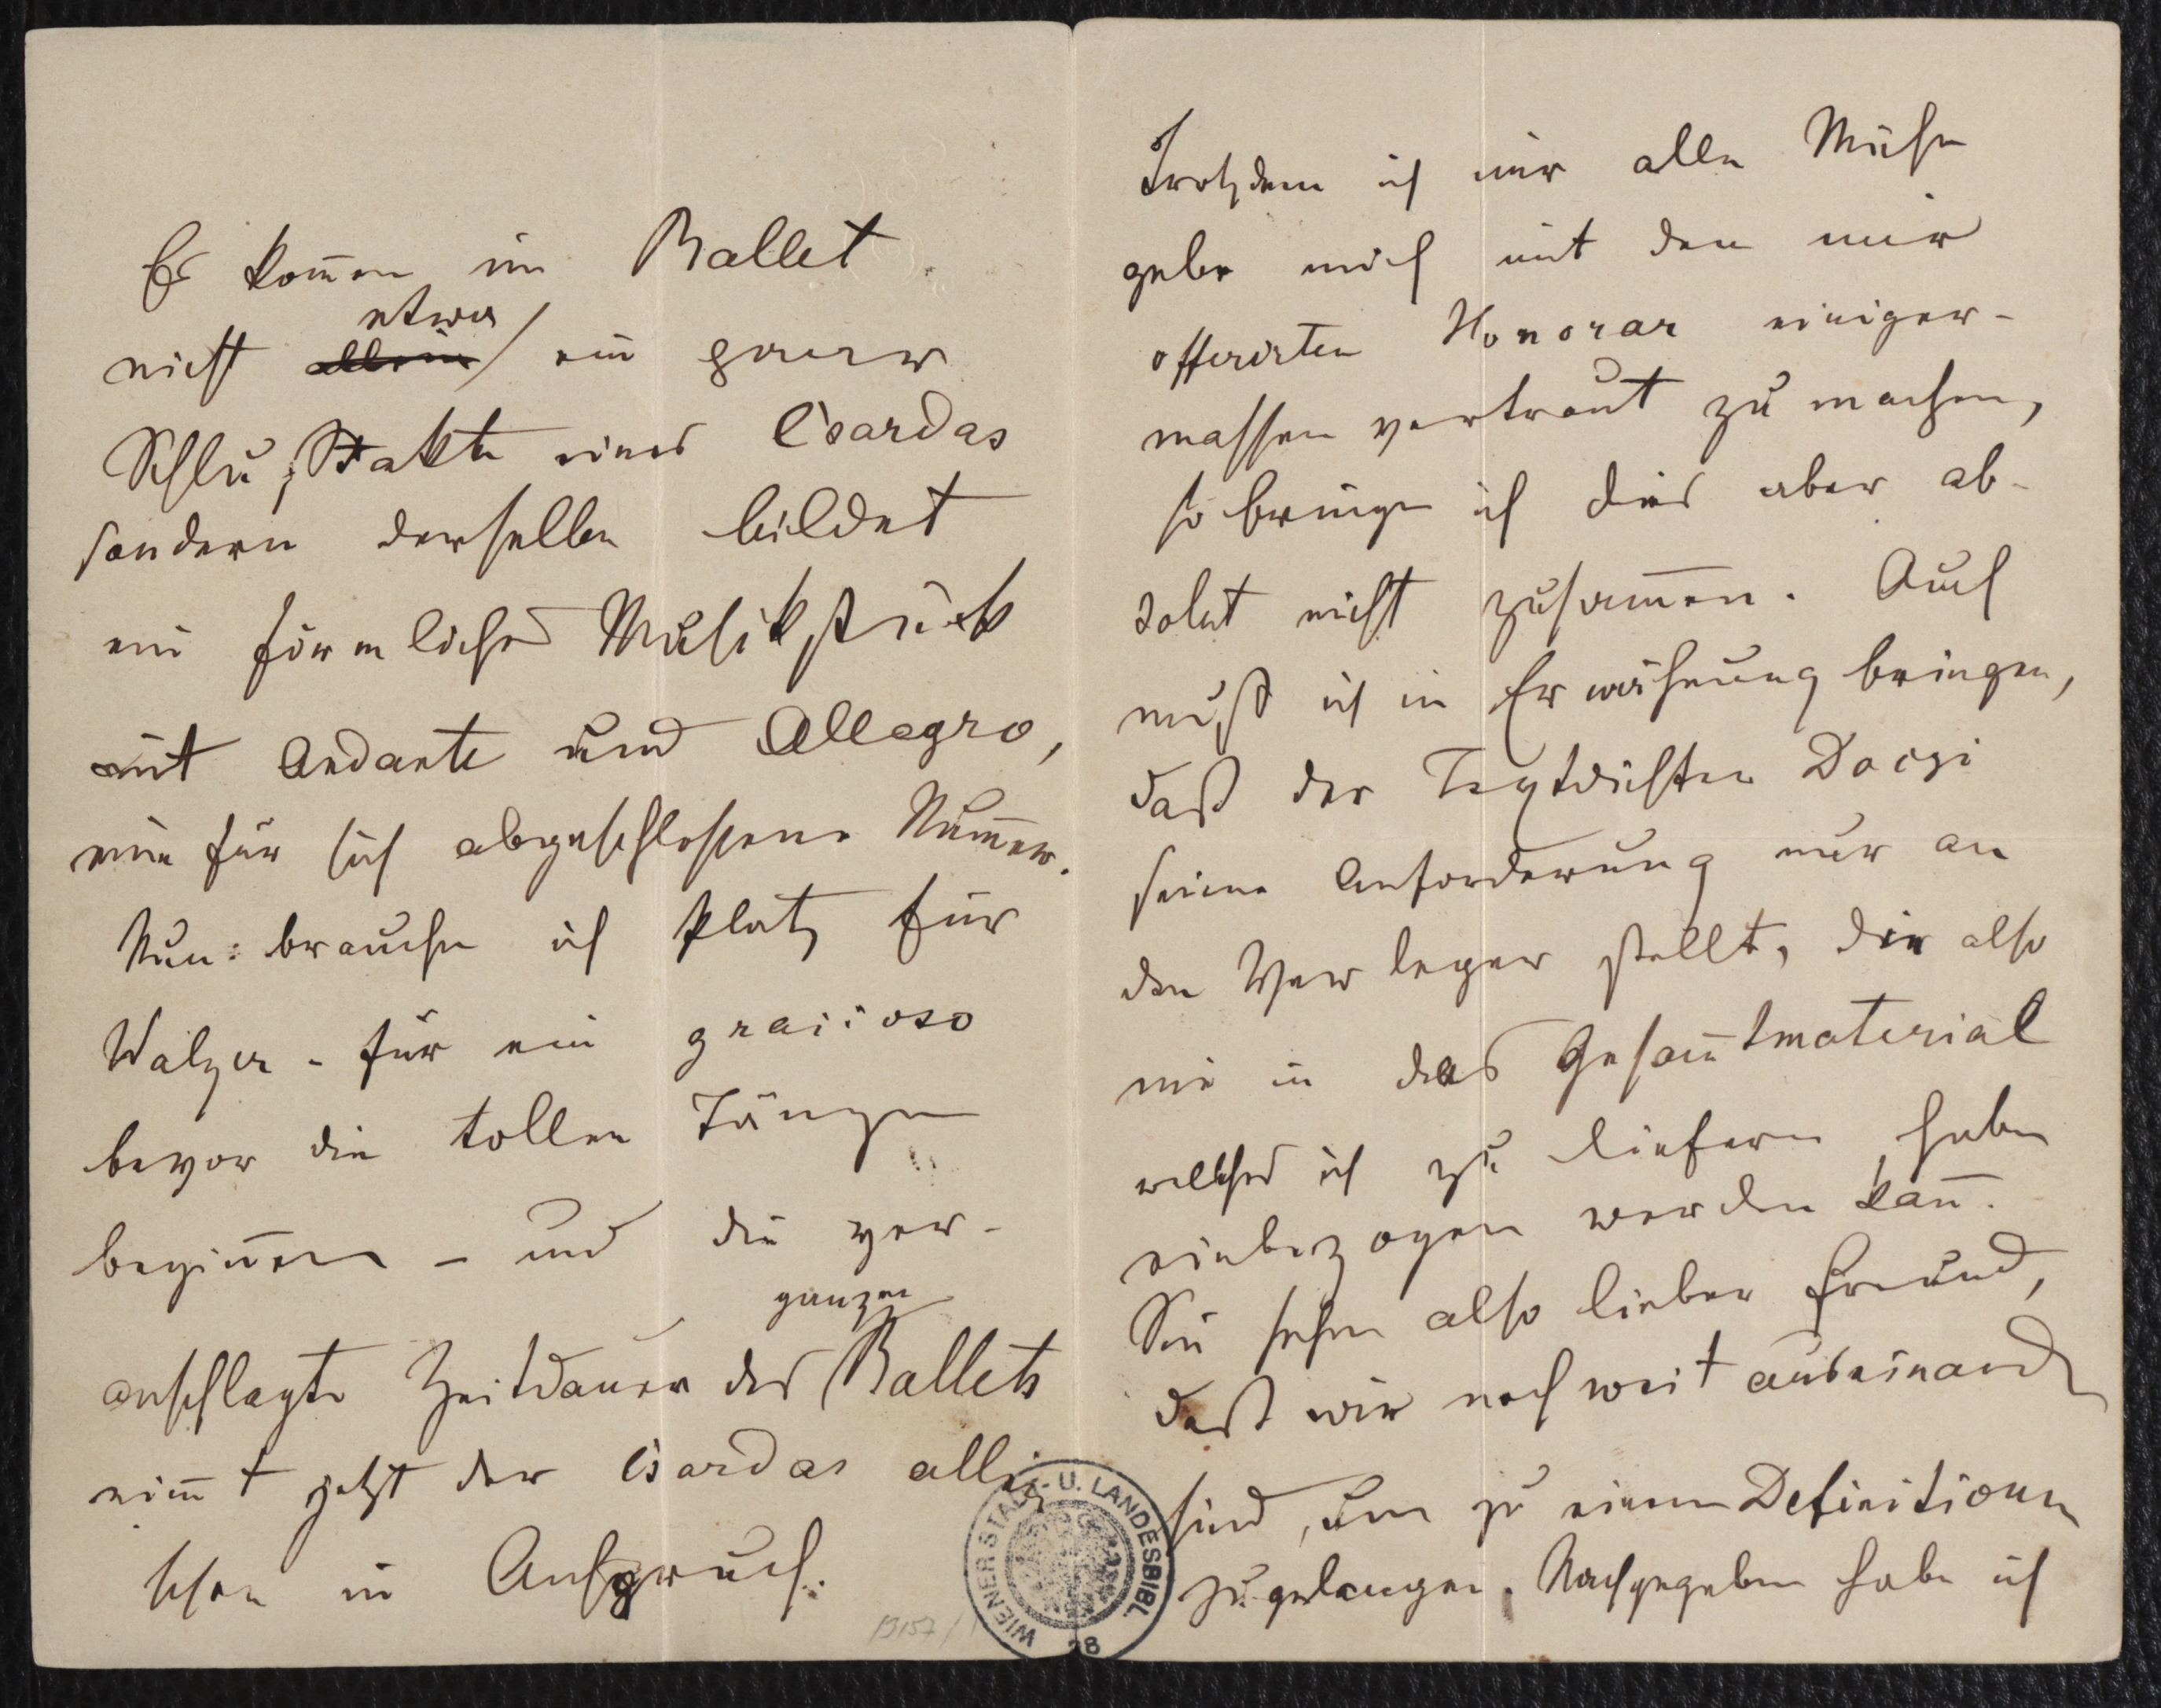 Es kom̅en im Ballet
etwa
nicht allein ein paar
Schlußtakte eines Csardas
sondern derselbe bildet
ein förmliches Musikstück
mit Andante und Allegro,
eine für sich abgeschlossene Num̅er.
Nun: brauche ich Platz für
Walzer - für ein gracioso
bevor die tollen Tänze
begin̅en - und die ver-
ganzen
anschlagte Zeitdauer des Ballets
nim̅t jetzt der Csardas allein
schon in Anspruch.
13157/
WIENER STADT- U. LANDESBIBL.
28
Trotzdem ich mir alle Mühe
gebe mich mit dem mir
offerirten Honorar einiger-
massen vertraut zu machen,
so bringe ich dies aber ab-
solut nicht zusam̅en. Auch
muß ich in Erwähnung bringen,
daß der Textdichter Doczi
seine Anforderung nur an
den Verleger stellt, die also
nie in das Gesam̅tmaterial
welches ich zu liefern habe
einbezogen werden kan̅.
Sie sehen also lieber Freund,
daß wir noch weit auseinander
sind, um zu einem Definitivum
zu gelangen. Nachgegeben habe ich